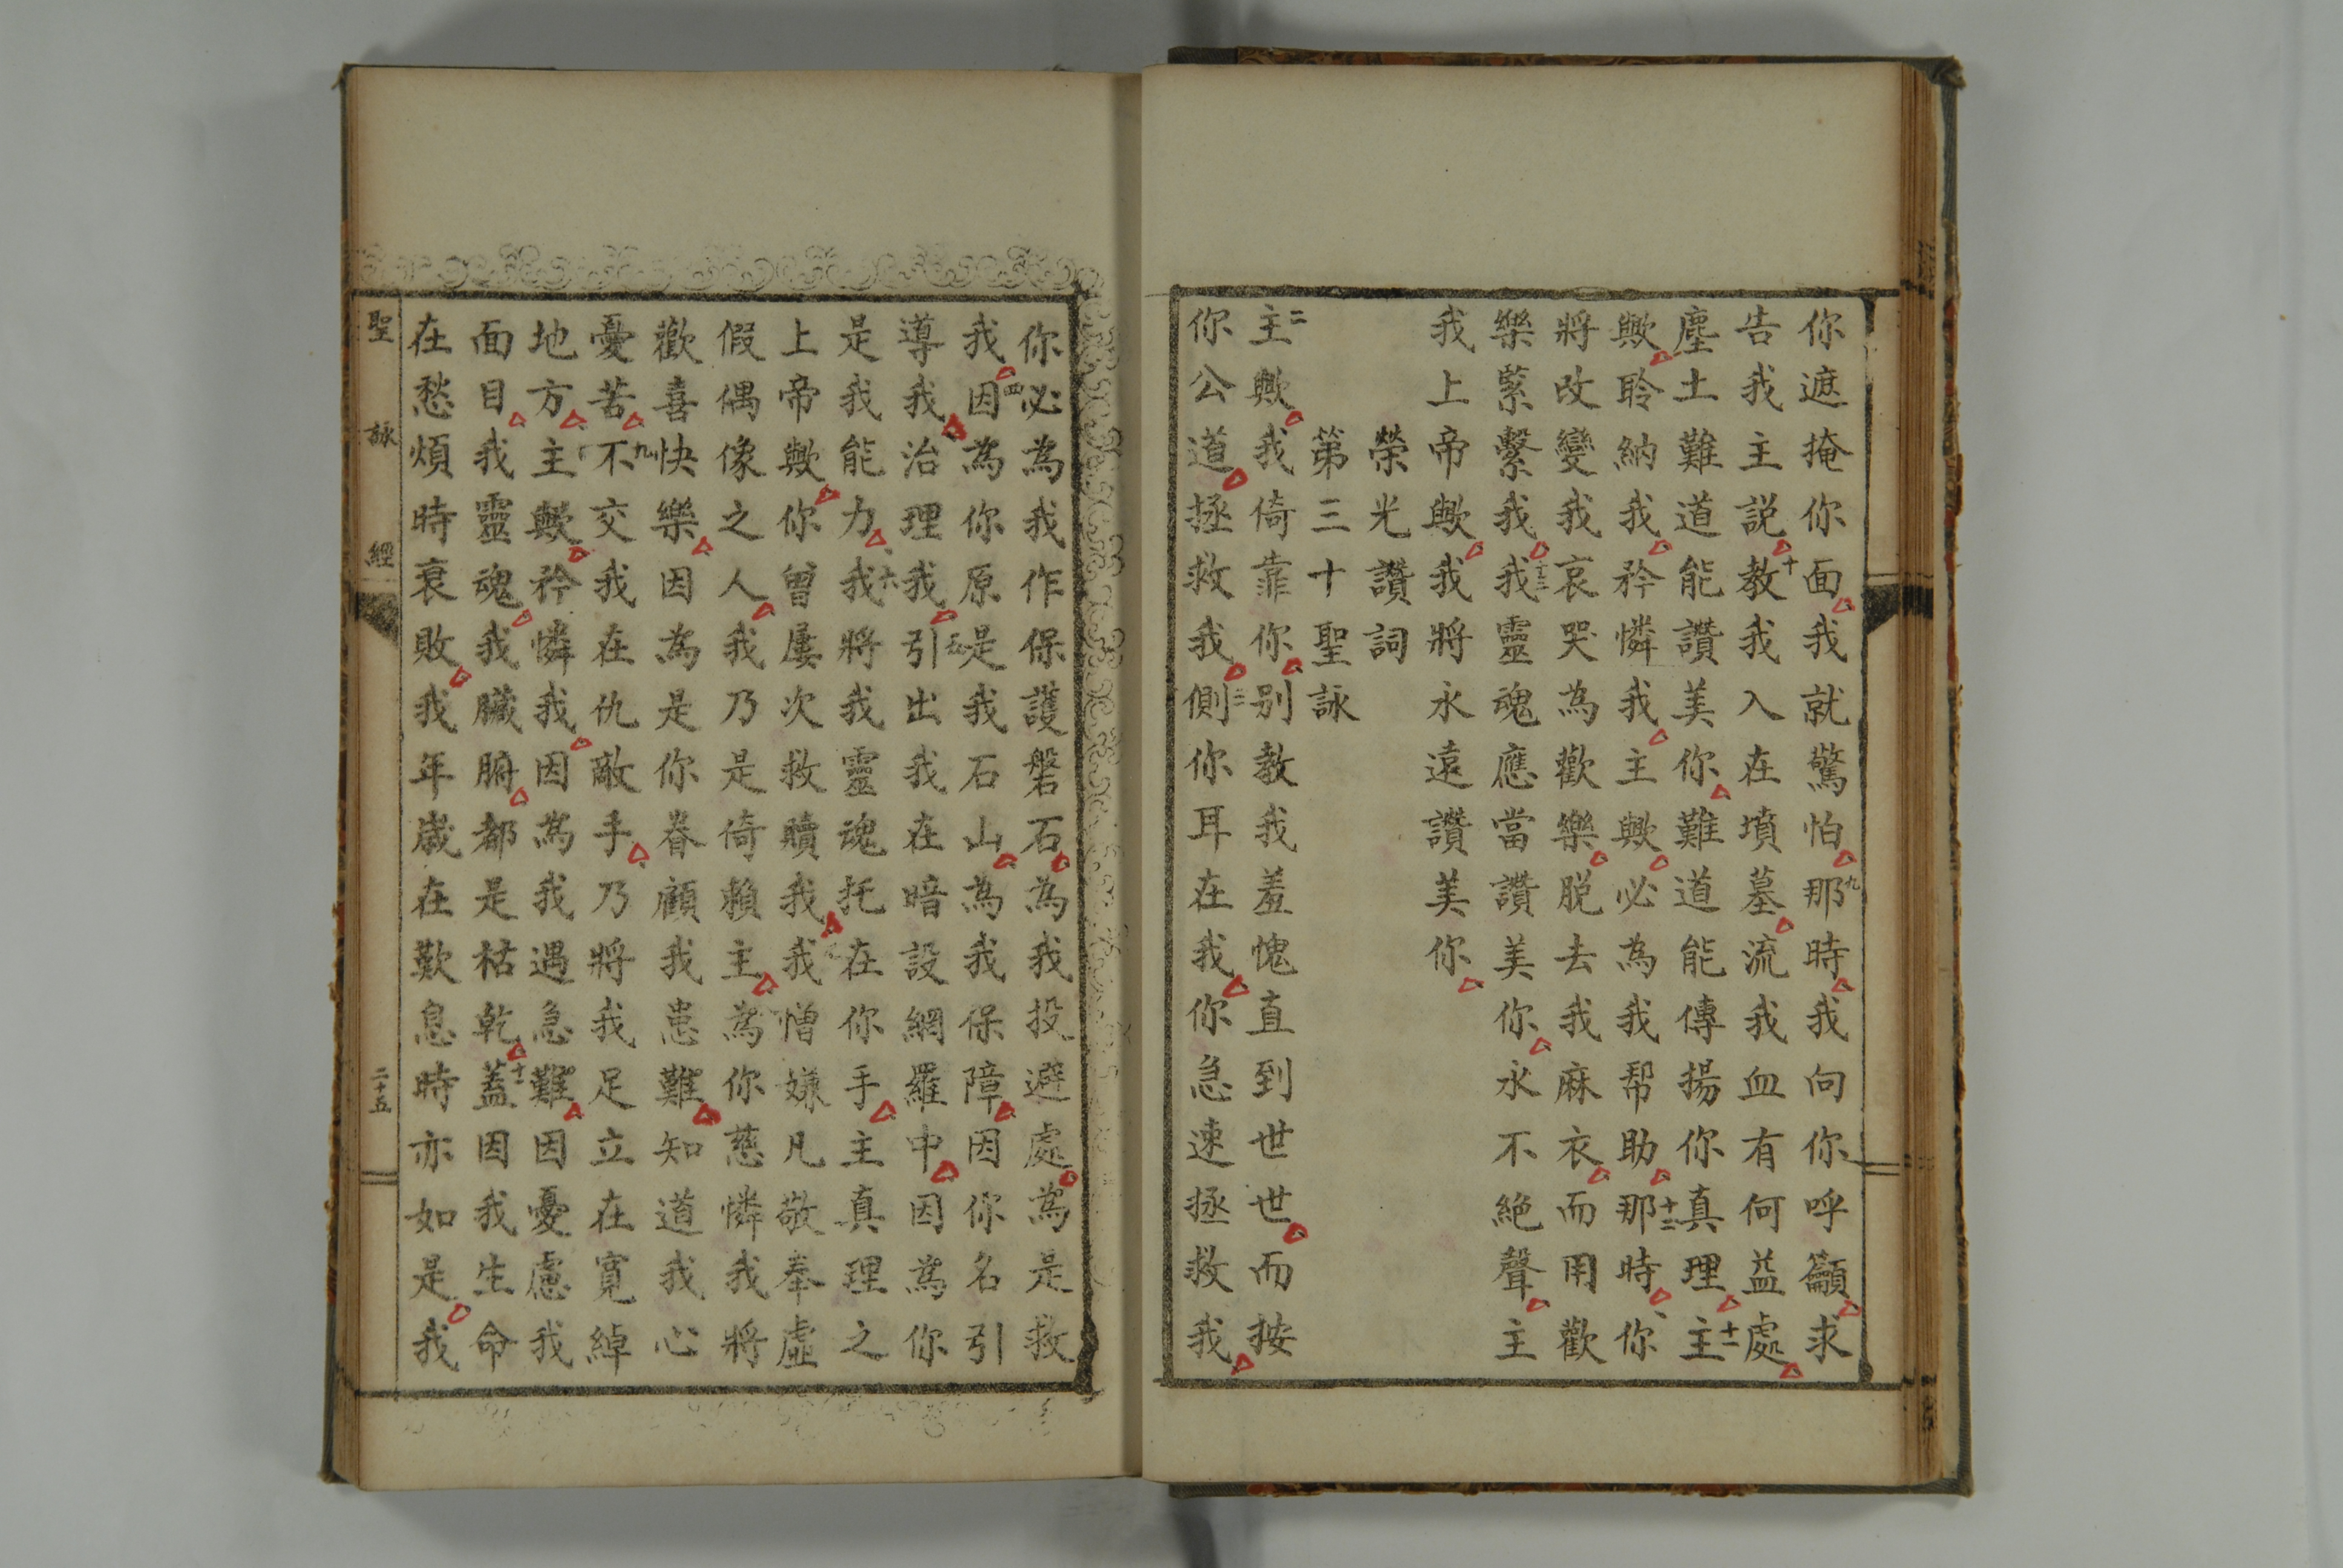 你遮掩你面我就驚怕九那時我向你呼籲求
告我主説十教我入在墳墓流我血有何益處
塵土難道能讚美你難道能傳揚你真理十一主
歟聆納我矜憐我主歟必為我帮助十二那時你
將改變我哀哭為歡樂脱去我麻衣而用歡
樂緊繫我十三我靈魂應當讚美你永不絶聲主
我上帝歟我將永遠讚美你
榮光讚詞
第三十聖詠
二主歟我倚靠你别教我羞愧直到世世而按
你公道拯救我三側你耳在我你急速拯救我
你必為我作保護磐石為我投避處為是救
我四因為你原是我石山為我保障因你名引
導我治理我五引出我在暗設網羅中因為你
是我能力六我將我靈魂托在你手主真理之
上帝歟你曾屢次救贖我我憎嫌凡敬奉虛
假偶像之人我乃是倚賴主為你慈憐我將
歡喜快樂因為是你眷顧我患難知道我心
憂苦九不交我在仇敵手乃將我足立在寬綽
地方主歟矜憐我因為我遇急難因憂慮我
面目我靈魂我臟腑都是枯乾十一蓋因我生命
在愁煩時衰敗我年歲在歎息時亦如是我
聖詠經 二十五